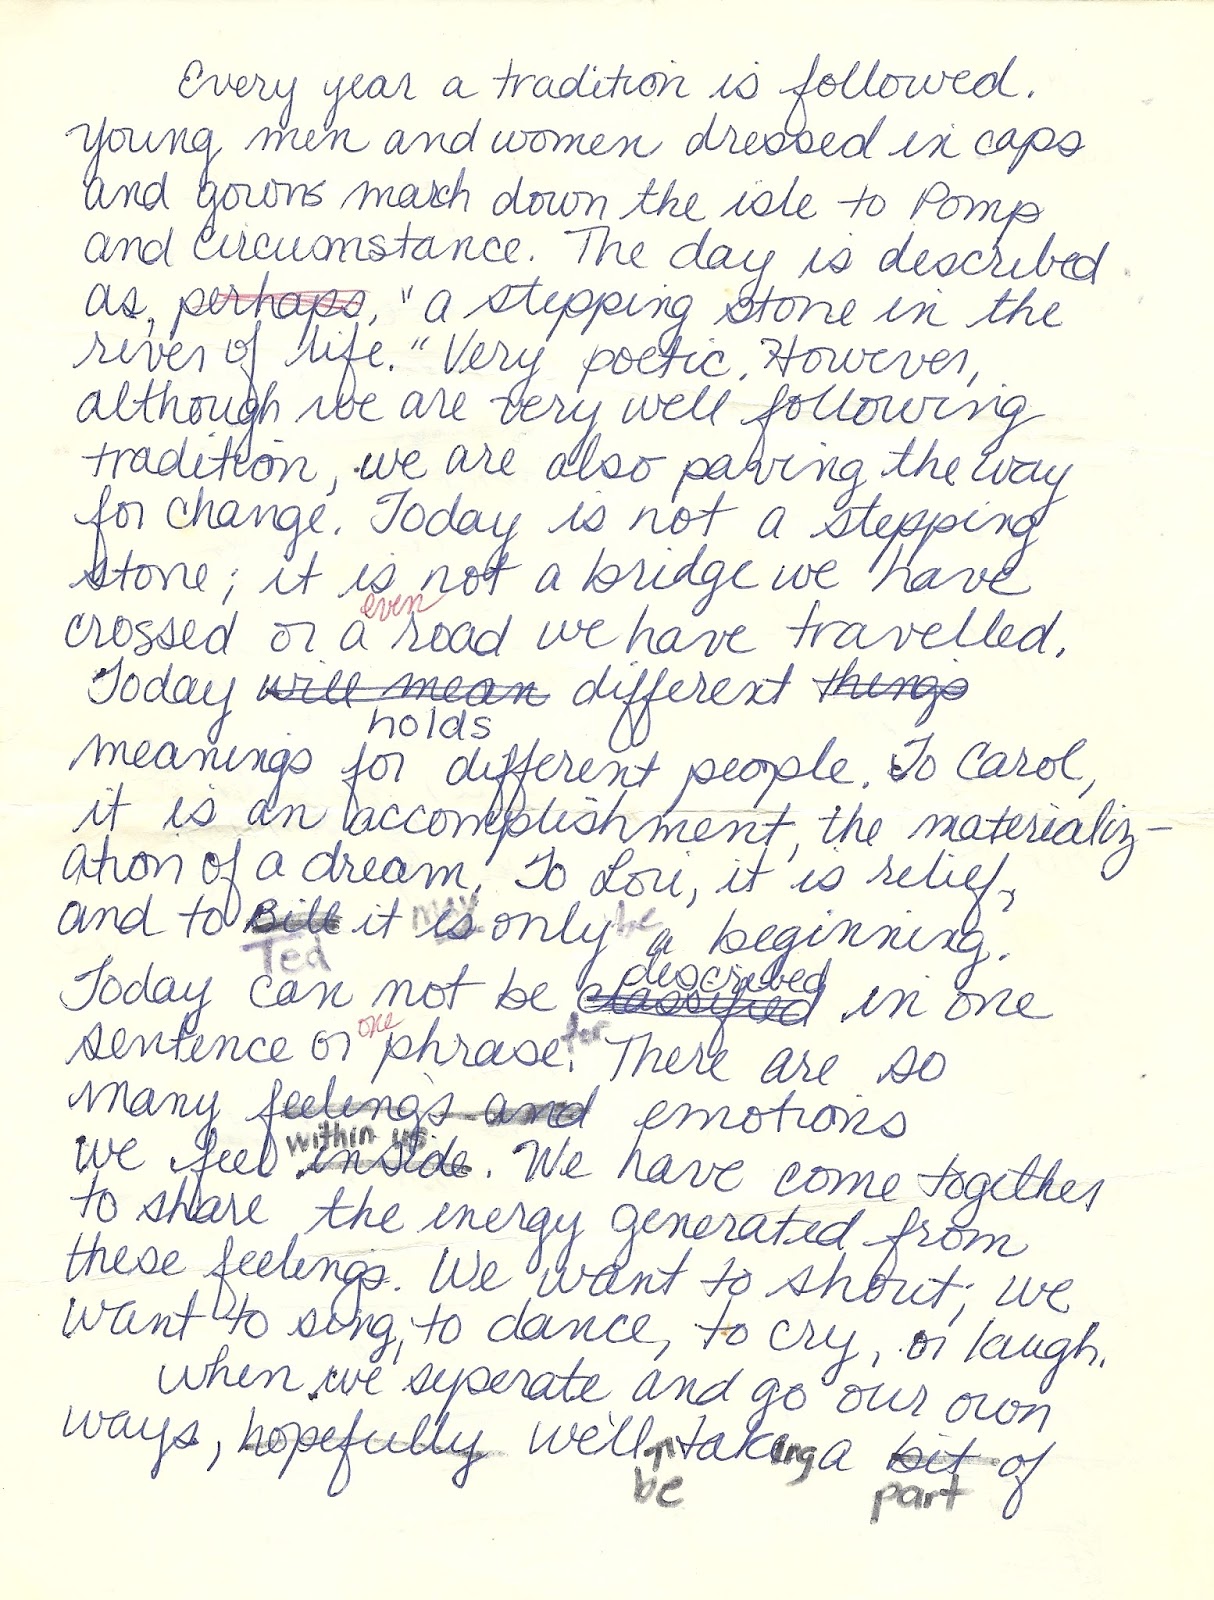 Every year a tradition is followed.
Young men and women dressed in caps
and gowns march down the isle to Pomp
and circumstance. The day is described
as, perhaps, "a stepping stone in the
river of life." Very poetic. However,
although we are very well following
tradition, we are also paving the way
for change. Today is not a stepping
stone; it is not a bridge we have
even
crossed or a road we have travelled.
Today will mean different things
holds
meanings for different people. To Carol,
it is an accomplishment, the materializ-
ation of a dream. To Lori, it is relief,
and to Bill it may is only be a beginning.
Ted
described
Today can not be classified in one
sentence or one phrase. for There are so
many feelings and emotions
within us
we feel inside. We have come together
to share the energy generated from
these feelings. We want to shout; we
want to sing, to dance, to cry, or laugh.
When we seperate and go our own
ways, hopefully we'll taking a bit of
be part